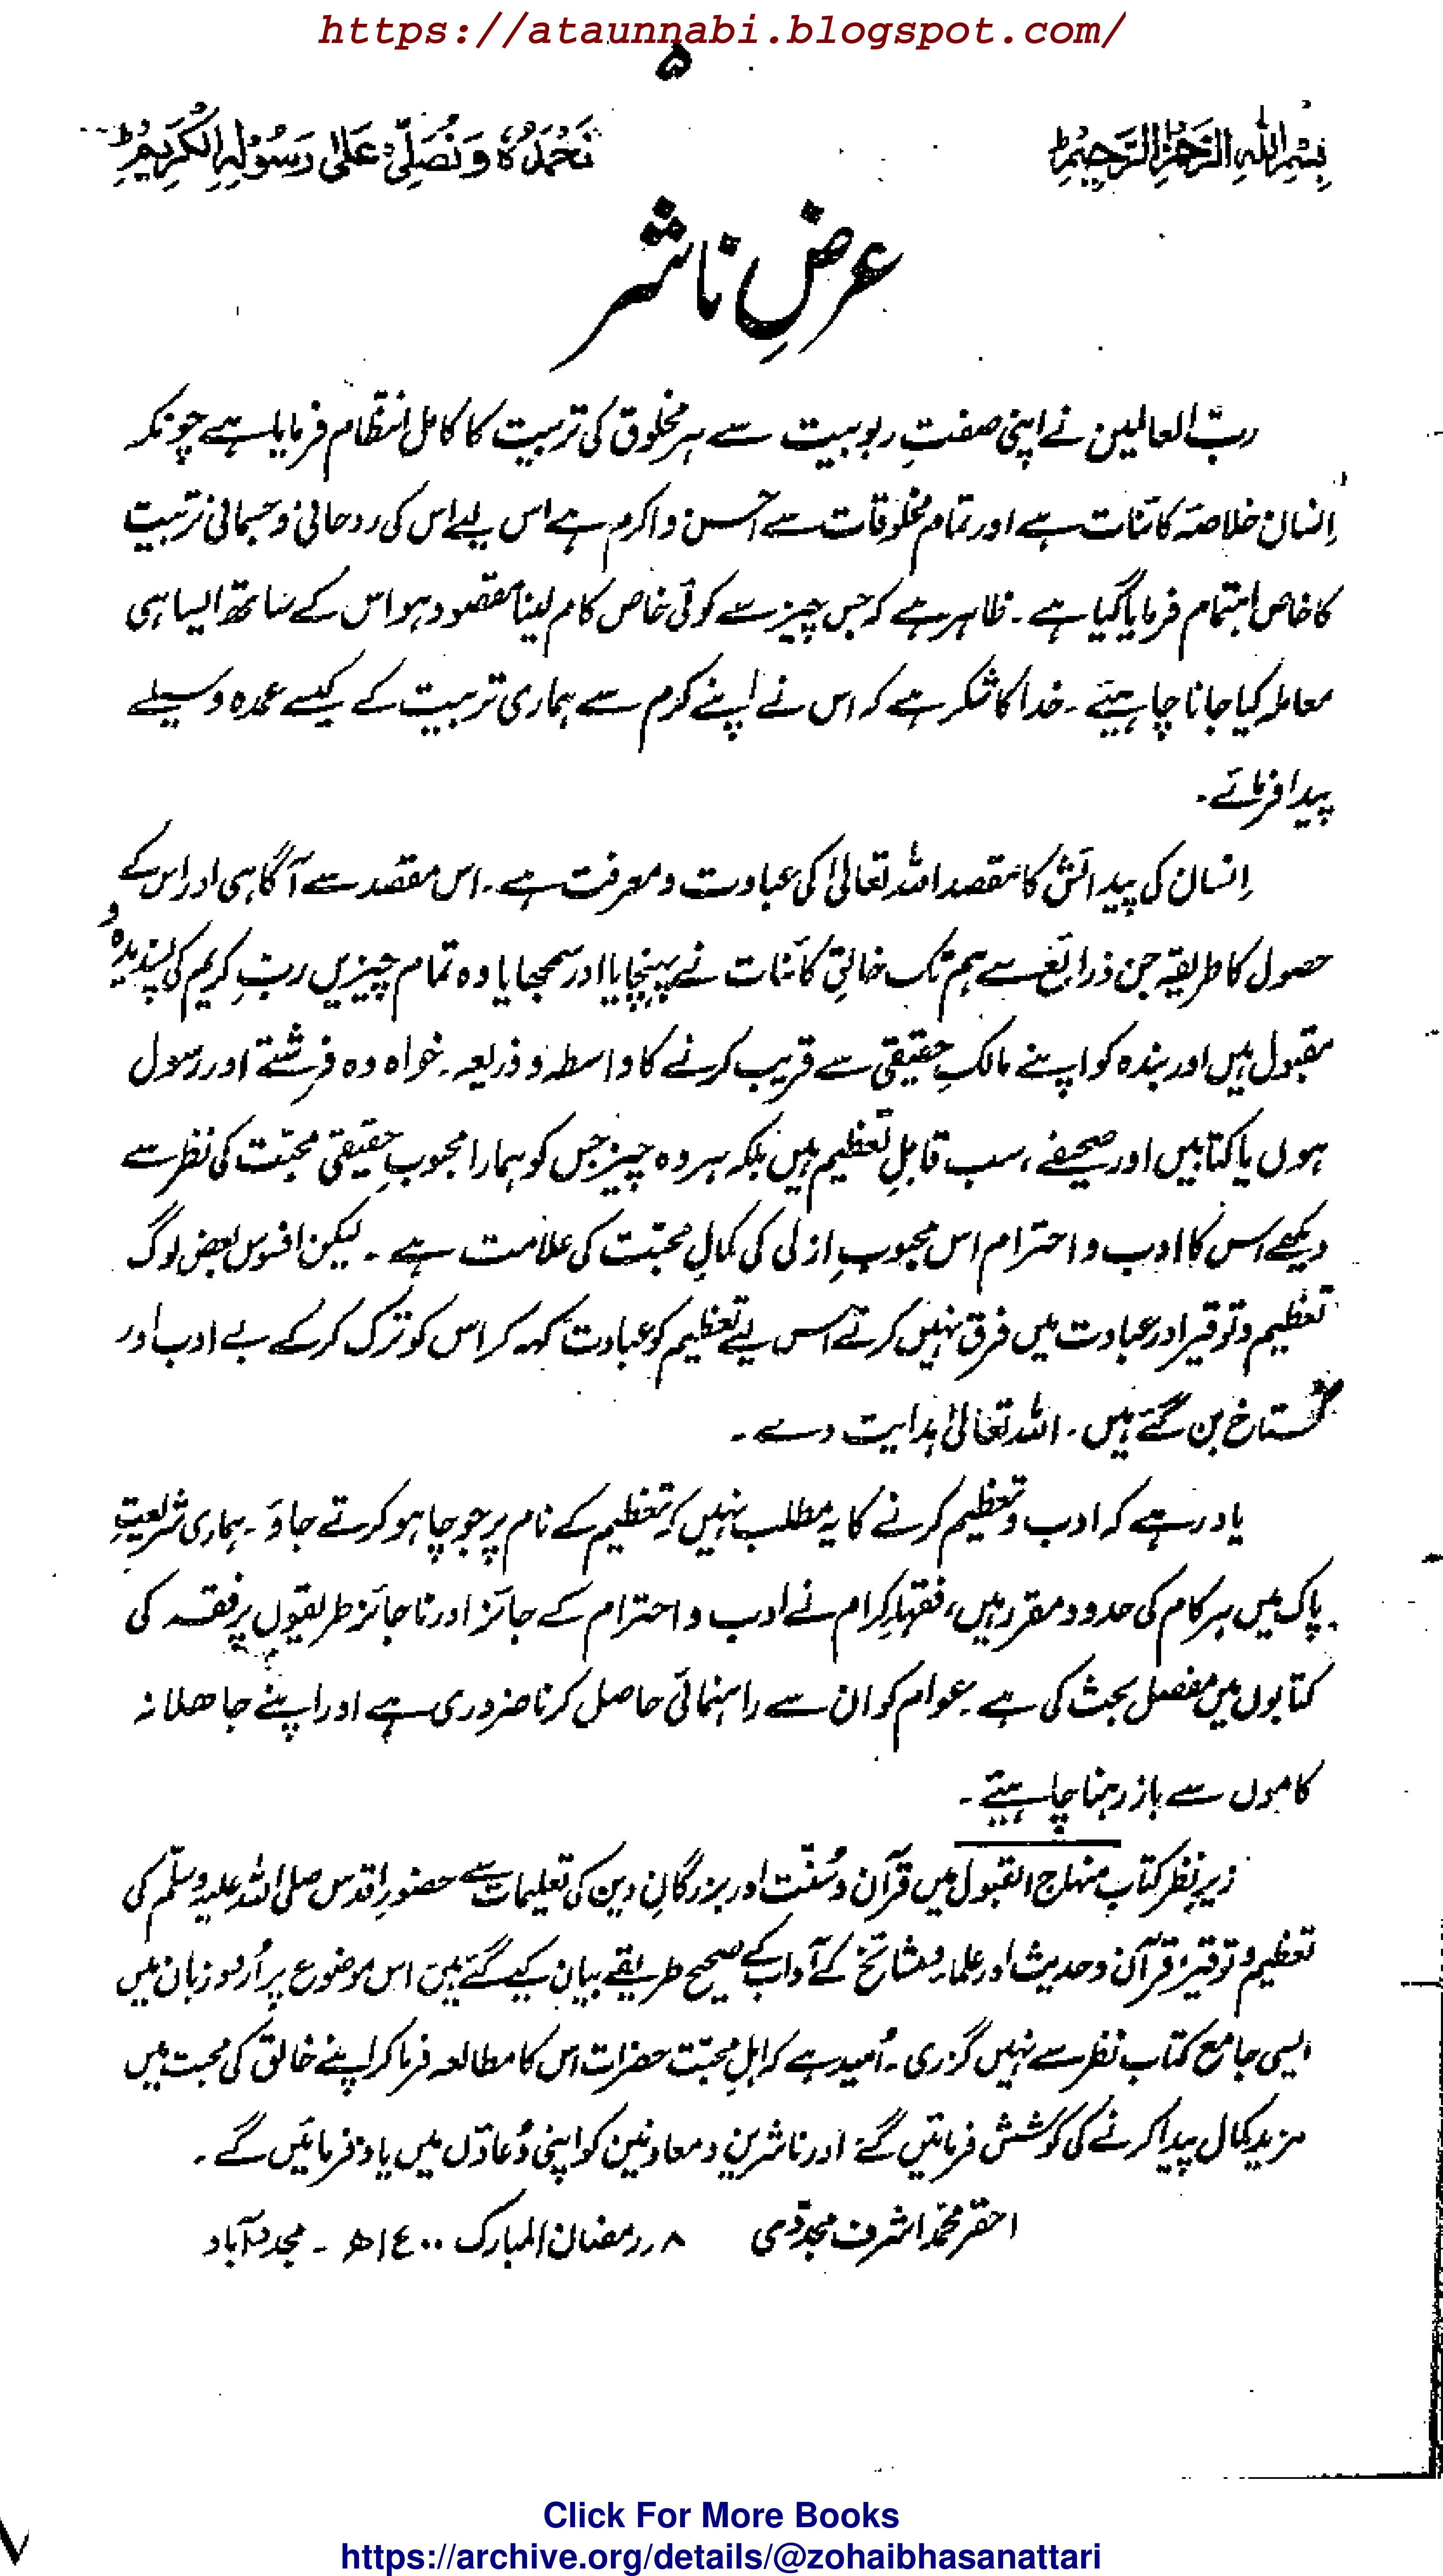 https://ataunnabi.blogspot.com/
۵
بِسْمِ اللهِ الرَّحْمٰنِ الرَّحِيْمِؕ نَحْمَدُهٗ وَنُصَلِّیْ عَلٰی رَسُوْلِهِ الْكَرِيْمِؕ
عرضِ ناشر
ربّ العالمین نے اپنی صفتِ ربوبیت سے ہر مخلوق کی تربیت کا کامل انتظام فرمایا ہے چونکہ
اِنسان خلاصۂ کائنات ہے اور تمام مخلوقات سے احسن و اکرم ہے اس لیے اس کی روحانی و جسمانی تربیت
کا خاص اہتمام فرمایا گیا ہے ۔ ظاہر ہے کہ جس چیز سے کوئی خاص کام لینا مقصود ہو اس کے ساتھ ایسا ہی
معاملہ کیا جانا چاہیئے ۔ خدا کا شکر ہے کہ اس نے اپنے کرم سے ہماری تربیت کے کیسے عمدہ وسیلے
پیدا فرمائے ۔
اِنسان کی پیدائش کا مقصد اللہ تعالیٰ کی عبادت و معرفت ہے ۔ اس مقصد سے آگاہی اور اس کے
حصول کا طریقہ جن ذرائع سے ہم تک خالقِ کائنات نے پہنچایا اور سمجھایا وہ تمام چیزیں ربِ کریم کی پسندیدہ و
مقبول ہیں اور بندہ کو اپنے مالکِ حقیقی سے قریب کرنے کا واسطہ و ذریعہ ۔ خواہ وہ فرشتے اور رسول
ہوں یا کتابیں اور صحیفے ، سب قابلِ تعظیم ہیں بلکہ ہر وہ چیز جس کو ہمارا محبوبِ حقیقی محبّت کی نظر سے
دیکھے اس کا ادب و احترام اس محبوبِ ازلی کی کمالِ محبّت کی علامت ہے ۔ لیکن افسوس بعض لوگ
تعظیم و توقیر اور عبادت میں فرق نہیں کرتے اس لیے تعظیم کو عبادت کہہ کر اس کو ترک کرکے بے ادب اور
گستاخ بن گئے ہیں ۔ اللہ تعالیٰ ہدایت دے ۔
یاد رہے کہ ادب و تعظیم کرنے کا یہ مطلب نہیں کہ تعظیم کے نام پر جو چاہو کرتے جاؤ ۔ ہماری شریعتِ
پاک میں ہر کام کی حدود مقرر ہیں ، فقہاءِ کرام نے ادب و احترام کے جائز اور ناجائز طریقوں پر فقہ کی
کتابوں میں مفصل بحث کی ہے ۔ عوام کو ان سے راہنمائی حاصل کرنا ضروری ہے اور اپنے جاھلانہ
کاموں سے باز رہنا چاہیئے ۔
زیرِ نظر کتاب منہاج القبول میں قرآن و سُنّت اور بزرگانِ دین کی تعلیمات سے حضورِ اقدس صلی اللہ علیہ وسلّم کی
تعظیم و توقیر ، قرآن و حدیث اور علماء و مشائخ کے آداب کے صحیح طریقے بیان کیے گئے ہیں اس موضوع پر اُردو زبان میں
ایسی جامع کتاب نظر سے نہیں گزری ۔ اُمید ہے کہ اہلِ محبّت حضرات اس کا مطالعہ فرما کر اپنے خالق کی محبت میں
مزید کمال پیدا کرنے کی کوشش فرمائیں گے اور ناشرین و معاونین کو اپنی دُعاؤں میں یاد فرمائیں گے ۔
احقر محمّد اشرف مجدّدی ۸ رمضان المبارک ۱٤۰۰ھ ۔ مجدد آباد
Click For More Books
https://archive.org/details/@zohaibhasanattari